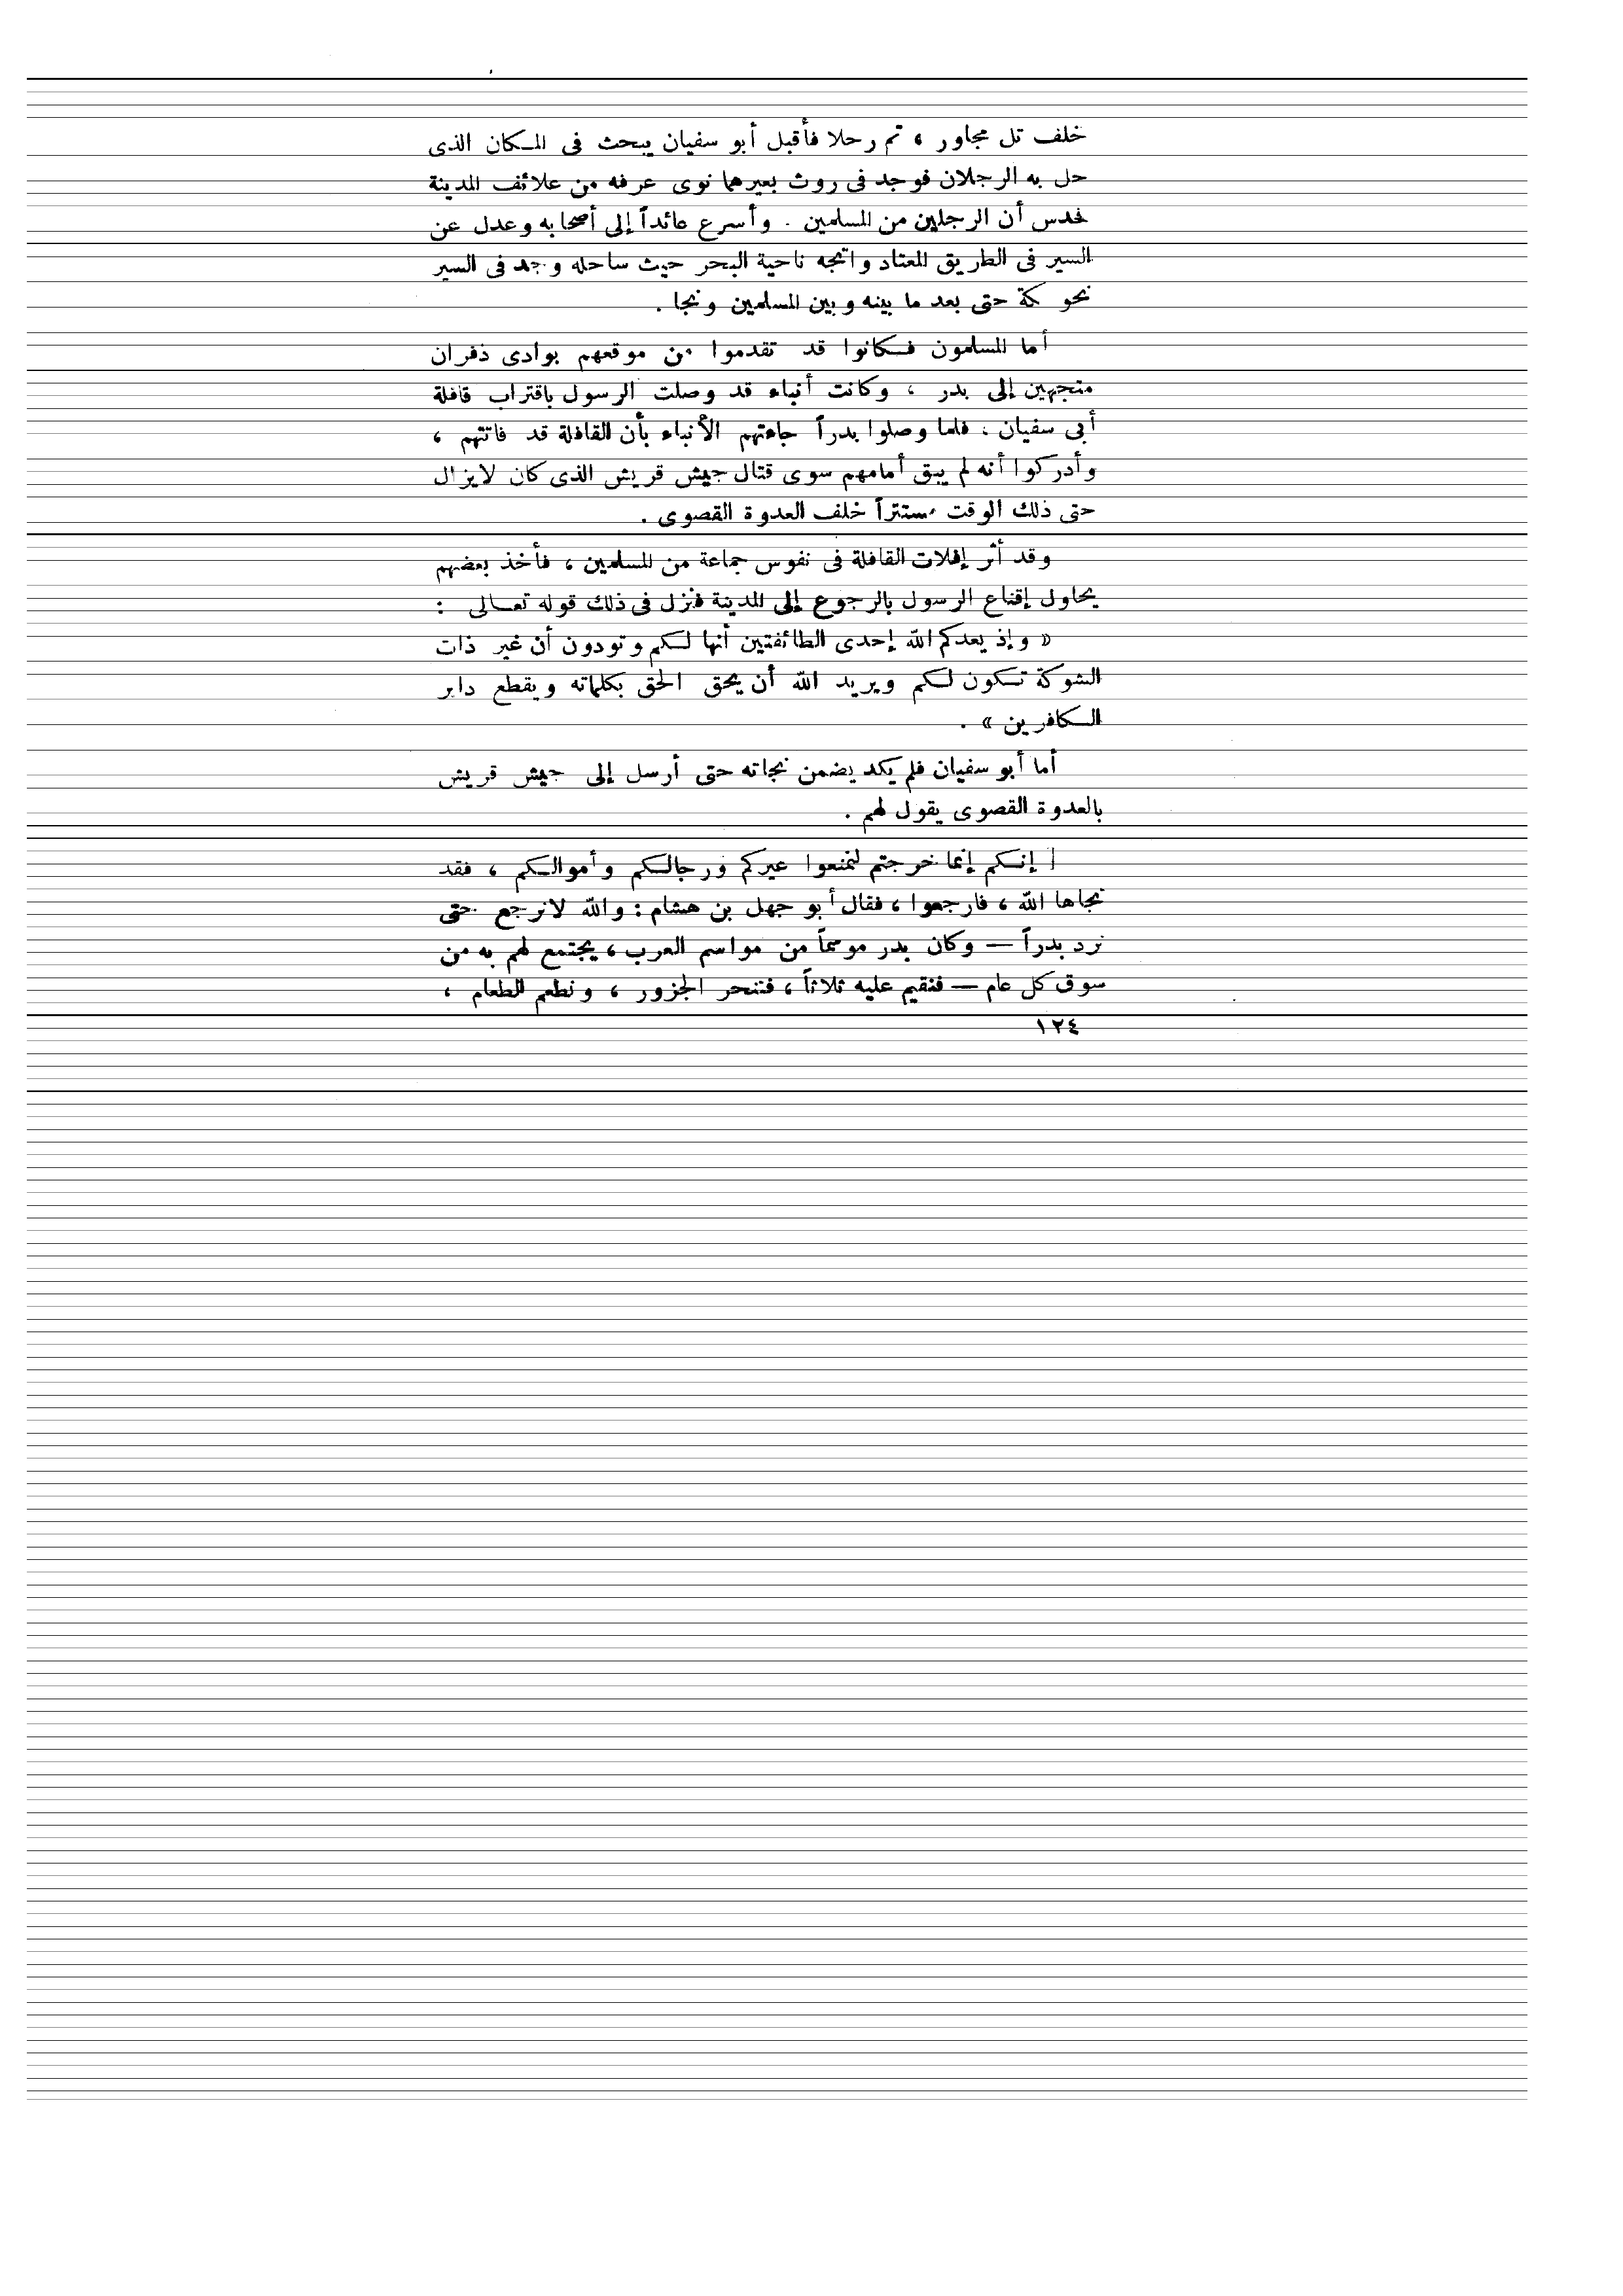 خلف تل مجاور ، ثم رحلا فأقبل أبو سفيان يبحث فى المكان الذى
حل به الرجلان فوجد فى روث بعيرهما نوى عرفه من علائف المدينة
فحدس أن الرجلين من المسلمين . وأسرع عائداً إلى أصحابه وعدل عن
السير فى الطريق المعتاد واتجه ناحية البحر حيث ساحله وجد فى السير
نحو مكة حتى بعد ما بينه وبين المسلمين ونجا .
أما المسلمون فكانوا قد تقدموا من موقعهم بوادى ذفران
متجهين إلى بدر ، وكانت أنباء قد وصلت الرسول باقتراب قافلة
أبى سفيان . فلما وصلوا بدراً جاءتهم الأنباء بأن القافلة قد فاتتهم ،
وأدركوا أنه لم يبق أمامهم سوى قتال جيش قريش الذى كان لايزال
حتى ذلك الوقت مستتراً خلف العدوة القصوى .
وقد أثر إفلات القافلة فى نفوس جماعة من المسلمين ، فأخذ بعضهم
يحاول إقناع الرسول بالرجوع إلى المدينة فنزل فى ذلك قوله تعالى :
« وإذ يعدكم الله إحدى الطائفتين أنها لكم وتودون أن غير ذات
الشوكة تكون لكم ويريد الله أن يحق الحق بكلماته ويقطع دابر
الكافرين » .
أما أبو سفيان فلم يكد يضمن نجاته حتى أرسل إلى جيش قريش
بالعدوة القصوى يقول لهم .
[ إنكم إنما خرجتم لتمنعوا عيركم ورجالكم وأموالكم ، فقد
نجاها الله ، فارجعوا ، فقال أبو جهل بن هشام : والله لانرجع حتى
نرد بدراً — وكان بدر موسماً من مواسم العرب ، يجتمع لهم به من
سوق كل عام — فنقيم عليه ثلاثاً ، فننحر الجزور ، ونطعم الطعام ،
١٢٤